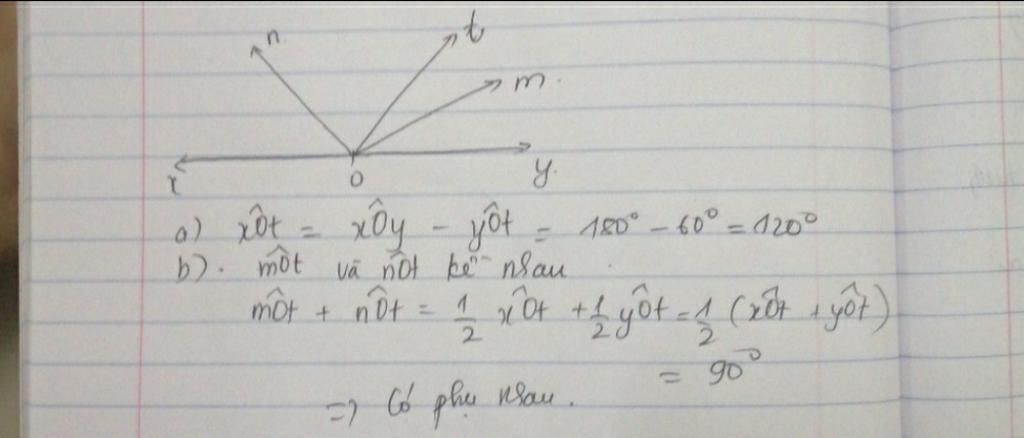 n
t
m
x
O
y
a) xÔt = xÔy - yÔt = 180° - 60° = 120°
b). mÔt và nÔt kề nhau
mÔt + nÔt = 1/2 xÔt + 1/2 yÔt = 1/2 (xÔt + yÔt)
= 90°
=> Có phụ nhau.